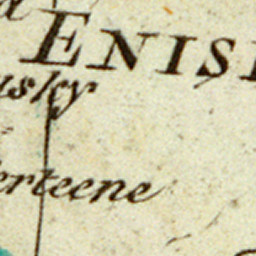 ENISI
usky
erteene